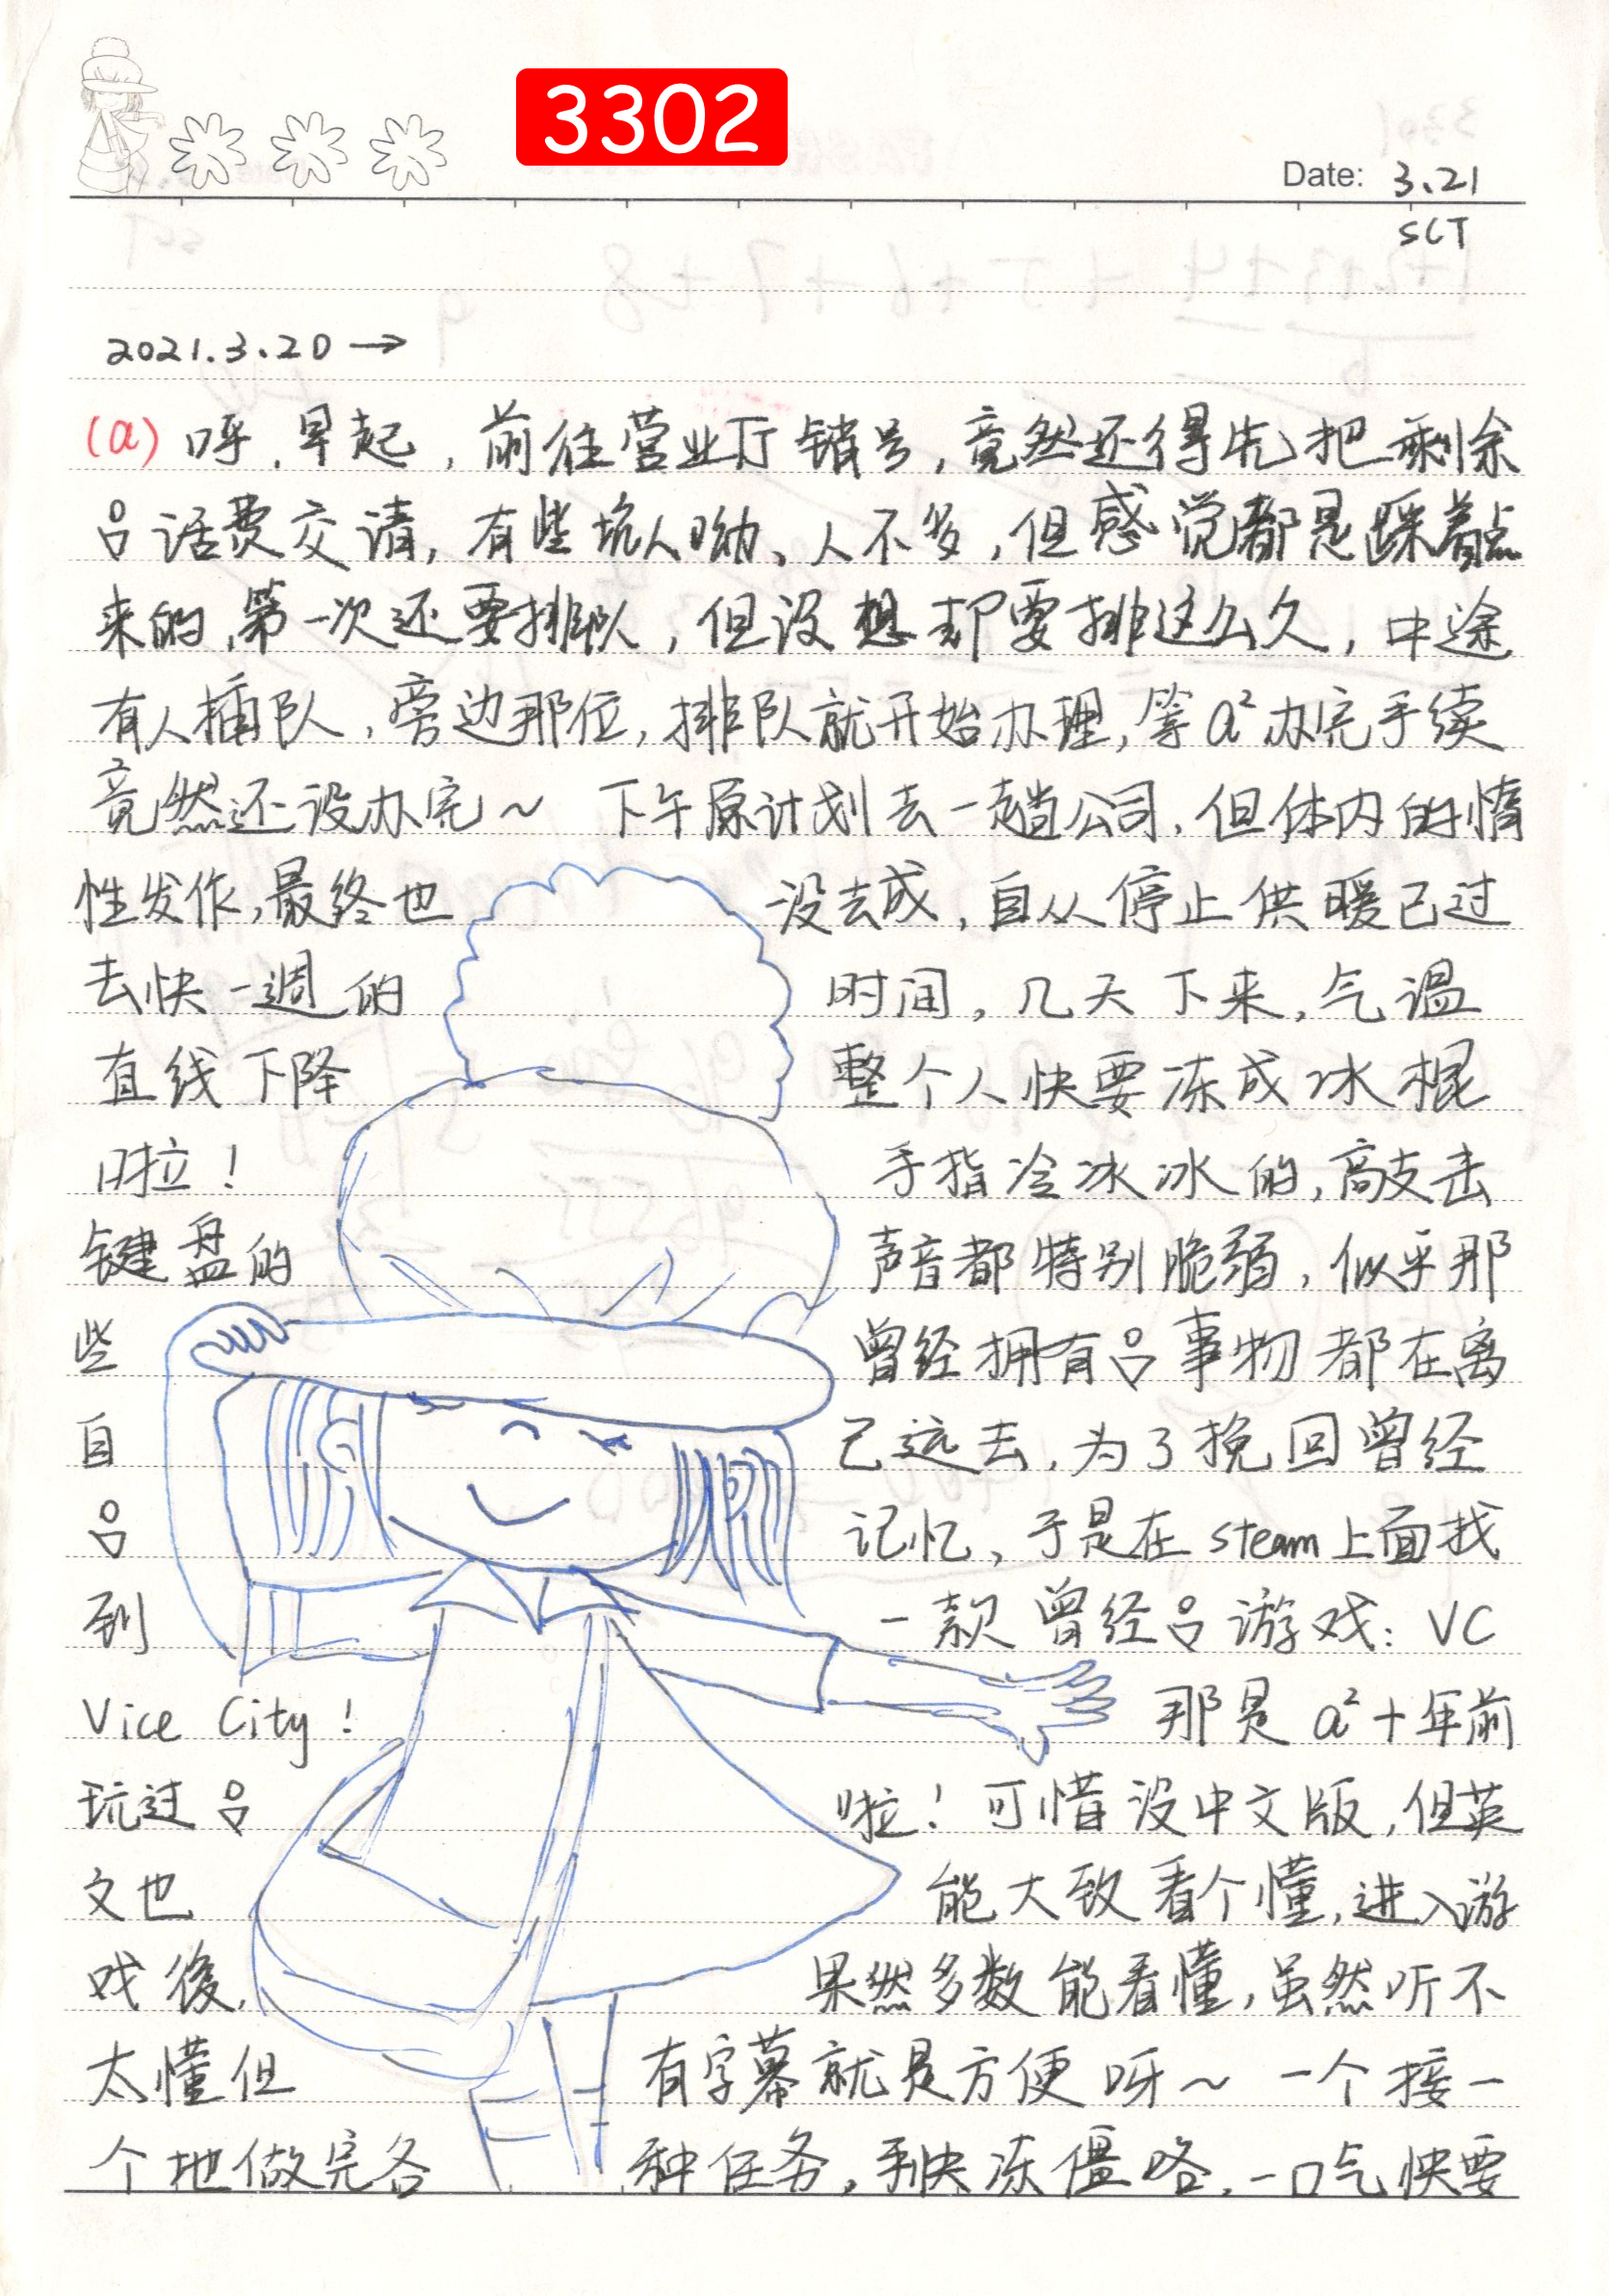 3302
Date: 3.21
SCT
2021.3.20→
(a) 呼,早起,前往营业厅销号,竟然还得先把剩余
吕话费交请,有些坑人呦、人不多,但感觉都是踩着点
来的,第一次还要排队,但没想却要排这么久,中途
有人插队,旁边那位,排队就开始办理,等a²办完手续
竟然还没办完~ 下午原计划去一趟公司,但体内的惰
性发作,最终也没去成,自从停止供暖已过
去快一週的时间,几天下来,气温
直线下降 整个人快要冻成冰棍
啦! 手指冷冰冰的,敲击
键盘的声音都特别脆弱,似乎那
些曾经拥有吕事物都在离
自己远去,为了挽回曾经
吕记忆,于是在steam上面找
到一款曾经吕游戏:VC
Vice City! 那是a²十年前
玩过吕啦!可惜没中文版,但英
文也能大致看个懂,进入游
戏後,果然多数能看懂,虽然听不
太懂但有字幕就是方便呀~ 一个接一
个地做完各种任务,手快冻僵咯,一口气快要